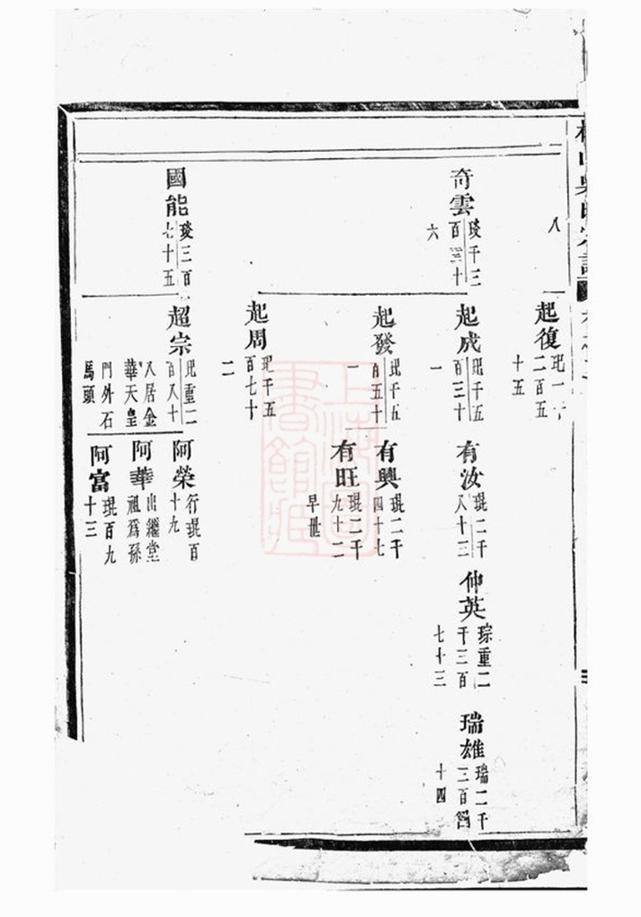 八
奇雲
琰千三
六
國能
琰三百
七十五
起復
二百五
十五
起成
玭千五
百三十
一
起發
玭千五
百五十
一
起周
玭千五
百七十
二
超宗
玭重二
百八十
八居金
華天皇
門外石
馬頭
有汝
琨二千
八十三
有興
琨二千
四十七
有旺
琨二千
九十二
早世
阿榮
行琨百
十九
阿華
出繼堂
祖爲孫
阿富
琨百九
十三
仲英
琮重二
千三百
七十三
瑞雄
瑞二千
三百四
十四